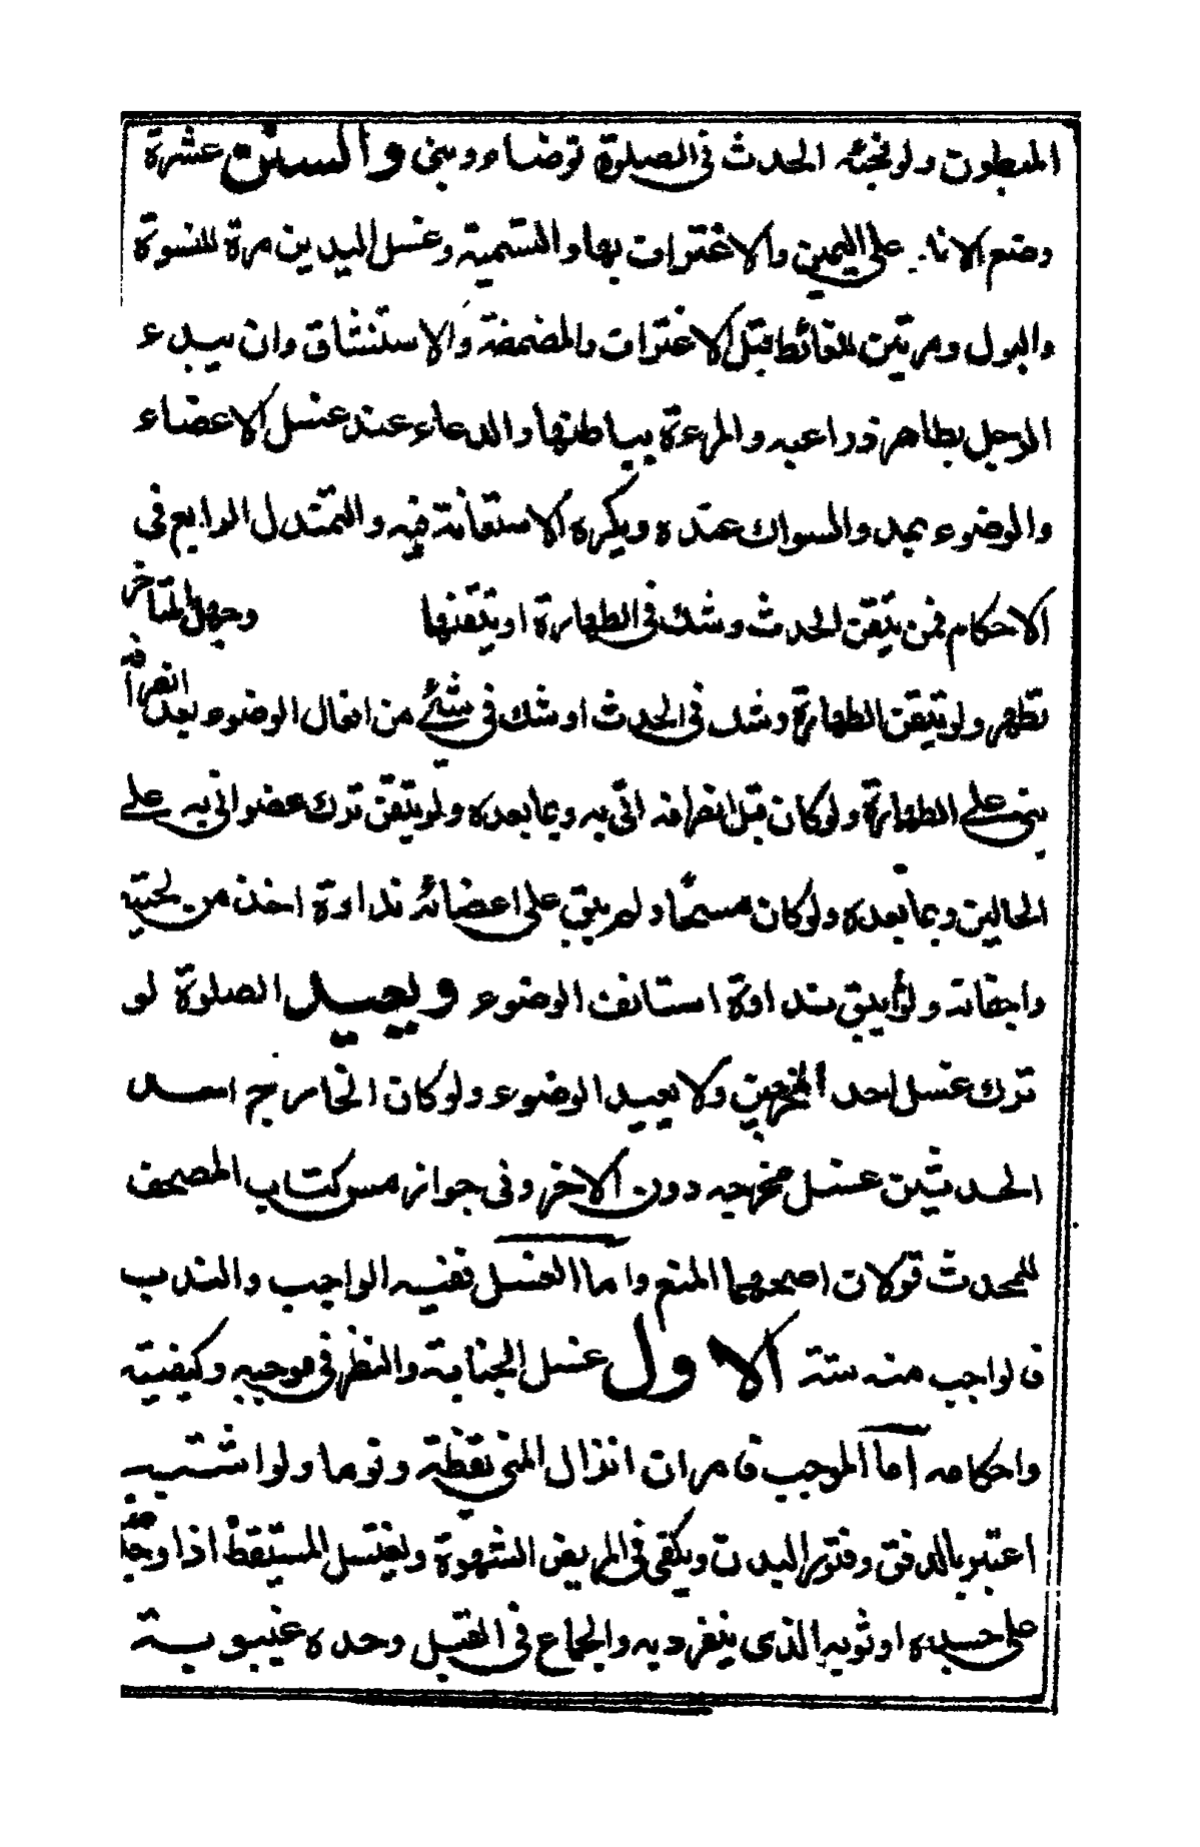 المبطون ولو فجئه الحدث في الصلوة توضاء وبنى والسنن عشرة
وضع الاناء على اليمين والاغتراف بها والتسمية وغسل اليدين مرة للنوم
والبول ومرتين للغائط قبل الاغتراف والمضمضة والاستنشاق وان يبدء
الرجل بظاهر ذراعيه والمرءة بباطنها والدعاء عند غسل الاعضاء
والوضوء بمد والسواك عنده ويكره الاستعانة فيه والتمندل الرابع في
الاحكام فمن تيقن الحدث وشك في الطهارة او تيقنها وجهل المتاخر
تطهر ولو تيقن الطهارة وشك في الحدث او شك في شئ من افعال الوضوء بعد انصرافه
بنى على الطهارة ولو كان قبل انصرافه اتى به وبما بعده ولو تيقن ترك عضو اتى به على
الحالين وبما بعده ولو كان مسحا ولم يبق على اعضائه نداوة اخذ من لحيته
واجفانه ولو لم يبق نداوة استانف الوضوء ويعيد الصلوة لو
ترك غسل احد المخرجين ولا يعيد الوضوء ولو كان الخارج احد
الحدثين غسل مخرجه دون الاخر وفي جواز مس كتاب المصحف
للمحدث قولان اصحهما المنع واما الغسل ففيه الواجب والندب
فالواجب منه ستة الاول غسل الجنابة والنظر في موجبه وكيفيته
واحكامه اما الموجب فامران انزال المني يقظة ونوما ولو اشتبه
اعتبر بالدفق وفتور البدن ويكفى في المريض الشهوة ويغتسل المستيقظ اذا وجد منيا
على جسده او ثوبه الذي ينفرد به والجماع في القبل وحده غيبوبة